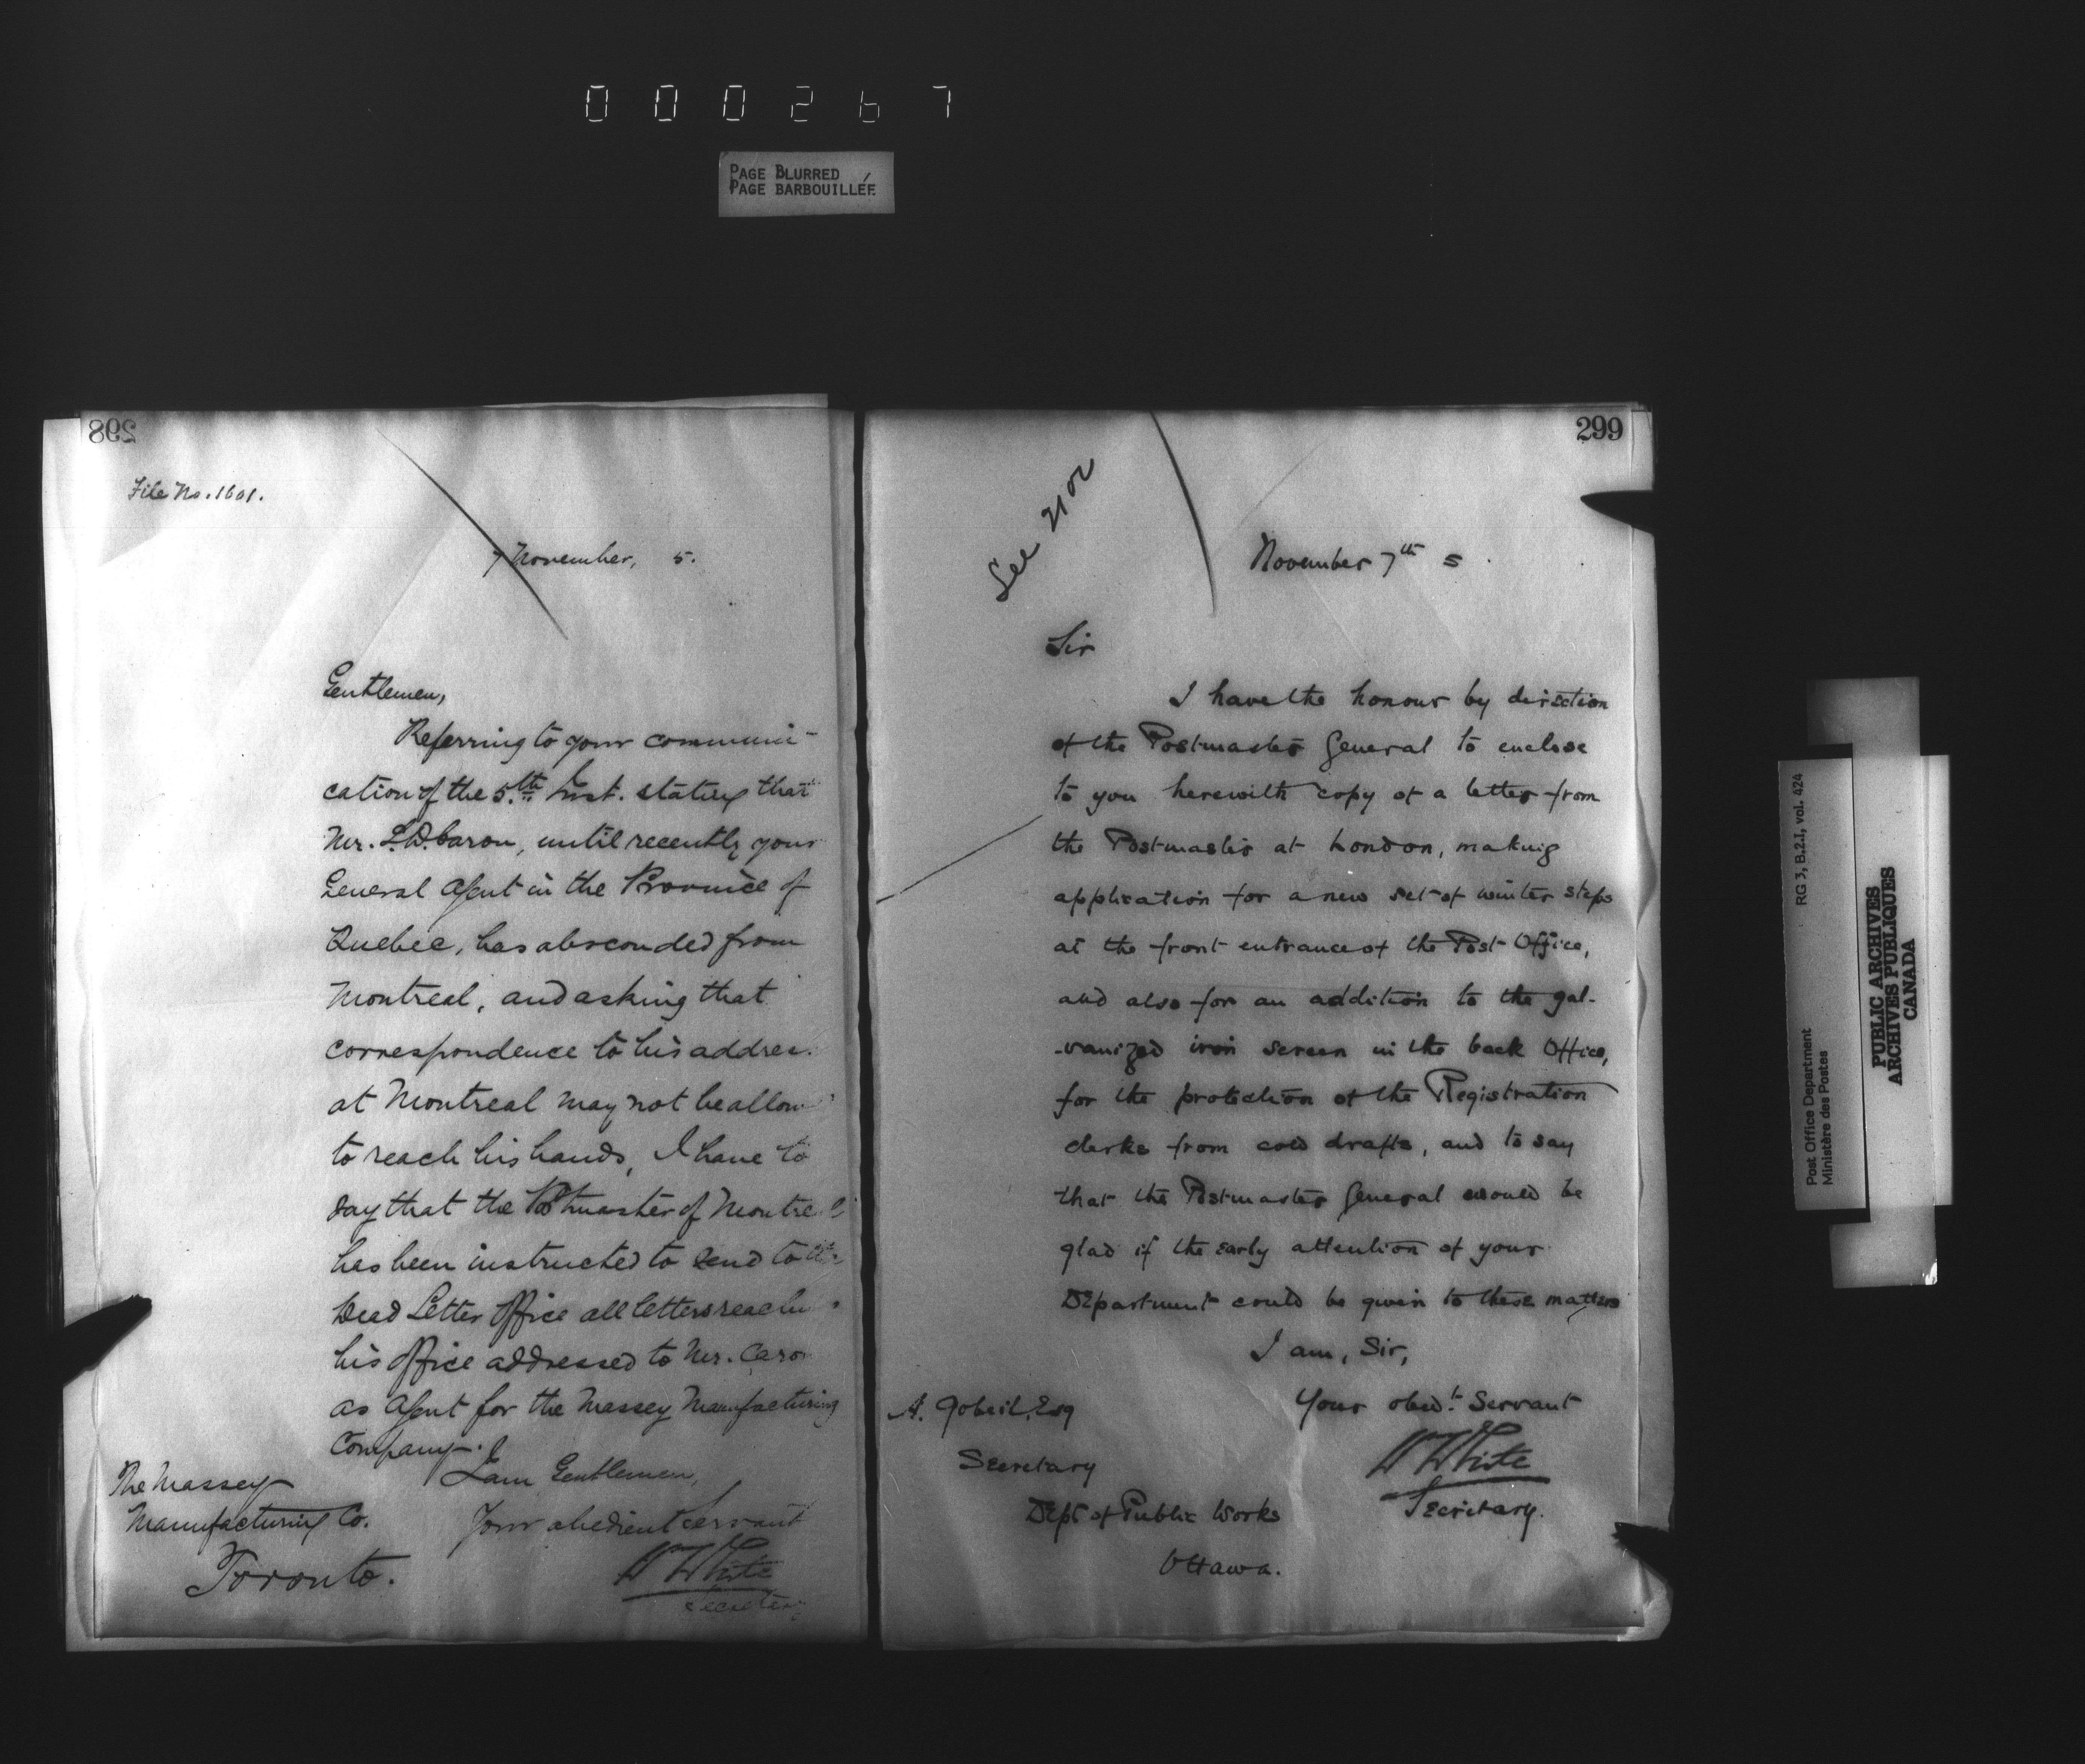 000267
PAGE BLURRED
PAGE BARBOUILLÉE
298
File No. 1601.
7 November, 5.
Gentlemen,
Referring to your communi-
cation of the 5.th Inst. stating that
Mr. L.D. Caron, until recently your
General Agent in the Province of
Quebec, has absconded from
Montreal, and asking that
correspondence to his addres
at Montreal may not be allow
to reach his hands, I have to
say that the Postmaster of Montreal
has been instructed to send to the
Dead Letter Office all letters reachin
his office addressed to Mr. Caro
as Agent for the Massey Manufacturing
Company.
I am Gentlemen,
Your obedient Servant
W White
Secretary
The Massey
Manufacturing Co.
Toronto.
299
See
November 7th 5.
Sir
I have the honour by direction
of the Postmaster General to enclose
to you herewith copy of a letter from
the Postmaster at London, making
application for a new set of winter steps
at the front entrance of the Post Office,
and also for an addition to the gal-
-vanized iron screen in the back Office,
for the protection of the Registration
clerks from cold drafts, and to say
that the Postmaster General would be
glad if the early attention of your
Department could be given to these matters
I am, Sir,
Your obedt. Servant
W White
Secretary.
A. Gobeil, Esq
Secretary
Dept of Public Works
Ottawa.
RG 3, B.2.I, vol. 424
Post Office Department
Ministère des Postes
PUBLIC ARCHIVES
ARCHIVES PUBLIQUES
CANADA